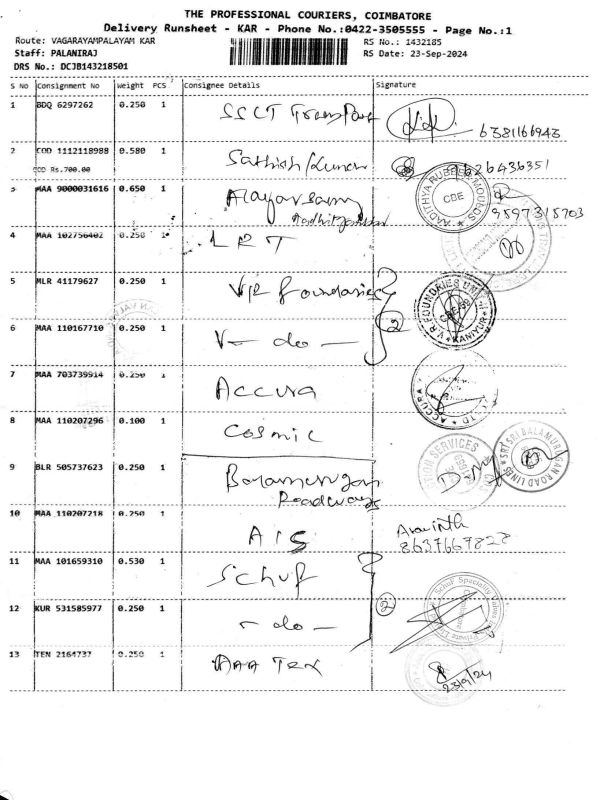 THE PROFESSIONAL COURIERS, COIMBATORE
Delivery Runsheet - KAR - Phone No.:0422-3505555 - Page No.:1
Route: VAGARAYAMPALAYAM KAR
RS No.: 1432185
Staff: PALANIRAJ
RS Date: 23-Sep-2024
DRS No.: DCJB143218501
S No Consignment No Weight PCS Consignee Details Signature
1 BDQ 6297262 0.250 1 SSCT Transport
6381166943
2 COD 1112118988 0.580 1 Sathish Kumar
COD Rs.700.00
3 MAA 9000031616 0.650 1 Alagarsamy
AADITHYA RUBBER MOULDS
CDE
9597315703
4 MAA 102756402 0.250 1 LRT
5 MLR 41179627 0.250 1 VR foundaries
2
V.R.FOUNDRIES UNIT-II
KANIYUR
6 MAA 110167710 0.250 1 - do -
7 MAA 703739914 0.250 1 Accura
ACCURA
LTD
8 MAA 110207296 0.100 1 Cosmic
SERVICES
SRI BALAMURUGAN ROAD LINES
9 BLR 505737623 0.250 1 Balamurugan
Roadways
10 MAA 110207218 0.250 1 AIS
Aravinth
11 MAA 101659310 0.530 1 Schuf
2
Schuf Speciality Valves
12 KUR 531585977 0.250 1 - do -
13 TEN 2164737 0.250 1 AAA Tex
23/9/24